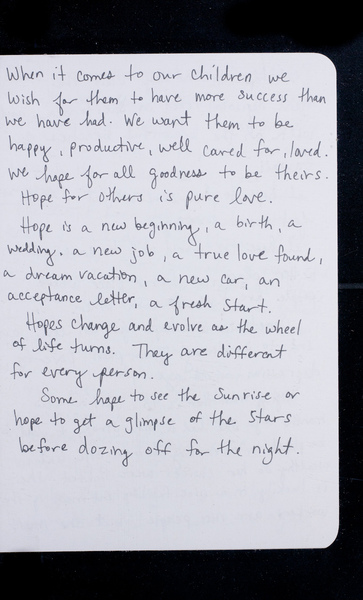 When it comes to our children we
wish for them to have more success than
we have had. We want them to be
happy, productive, well cared for, loved.
We hope for all goodness to be theirs.
Hope for others is pure love.
Hope is a new beginning, a birth, a
wedding, a new job, a true love found,
a dream vacation, a new car, an
acceptance letter, a fresh start.
Hopes change and evolve as the wheel
of life turns. They are different
for every person.
Some hope to see the sunrise or
hope to get a glimpse of the stars
before dozing off for the night.